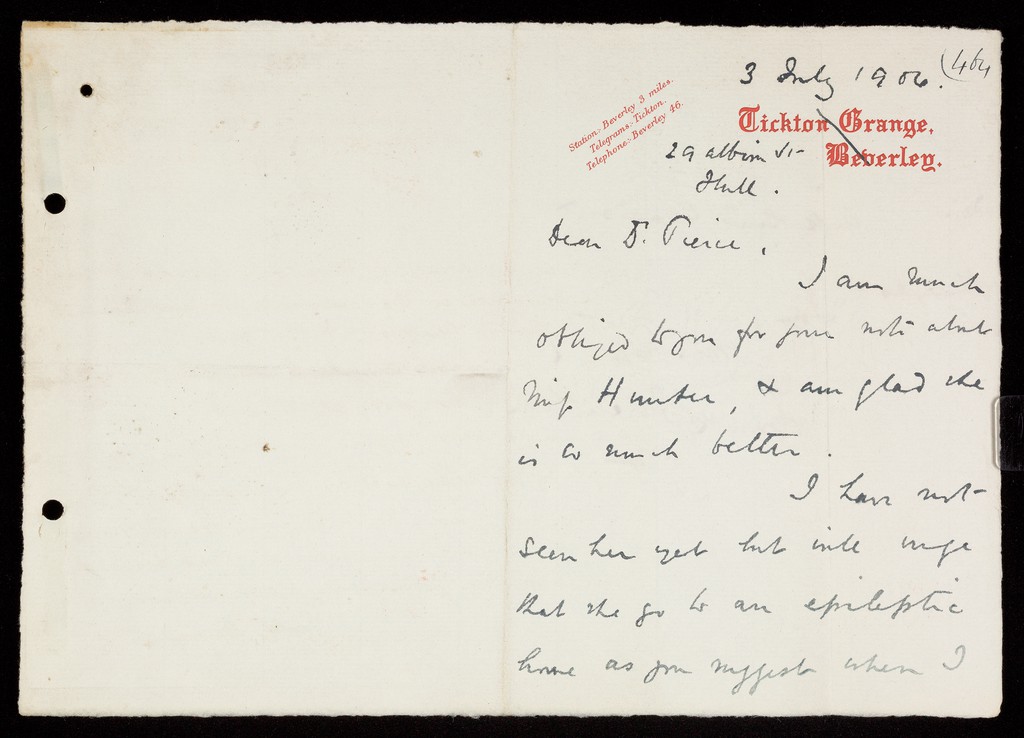 (464
3 July 1906.
Station:- Beverley 3 miles.
Telegrams:- Tickton.
Telephone:- Beverley 46.
Tickton Grange,
Beverley.
29 Albion St
Hull.
Dear Dr. Pierce,
I am much
obliged to you for your note about
Miss Hunter, & am glad she
is so much better.
I have not
seen her yet but will urge
that she go to an epileptic
home as you suggest when I